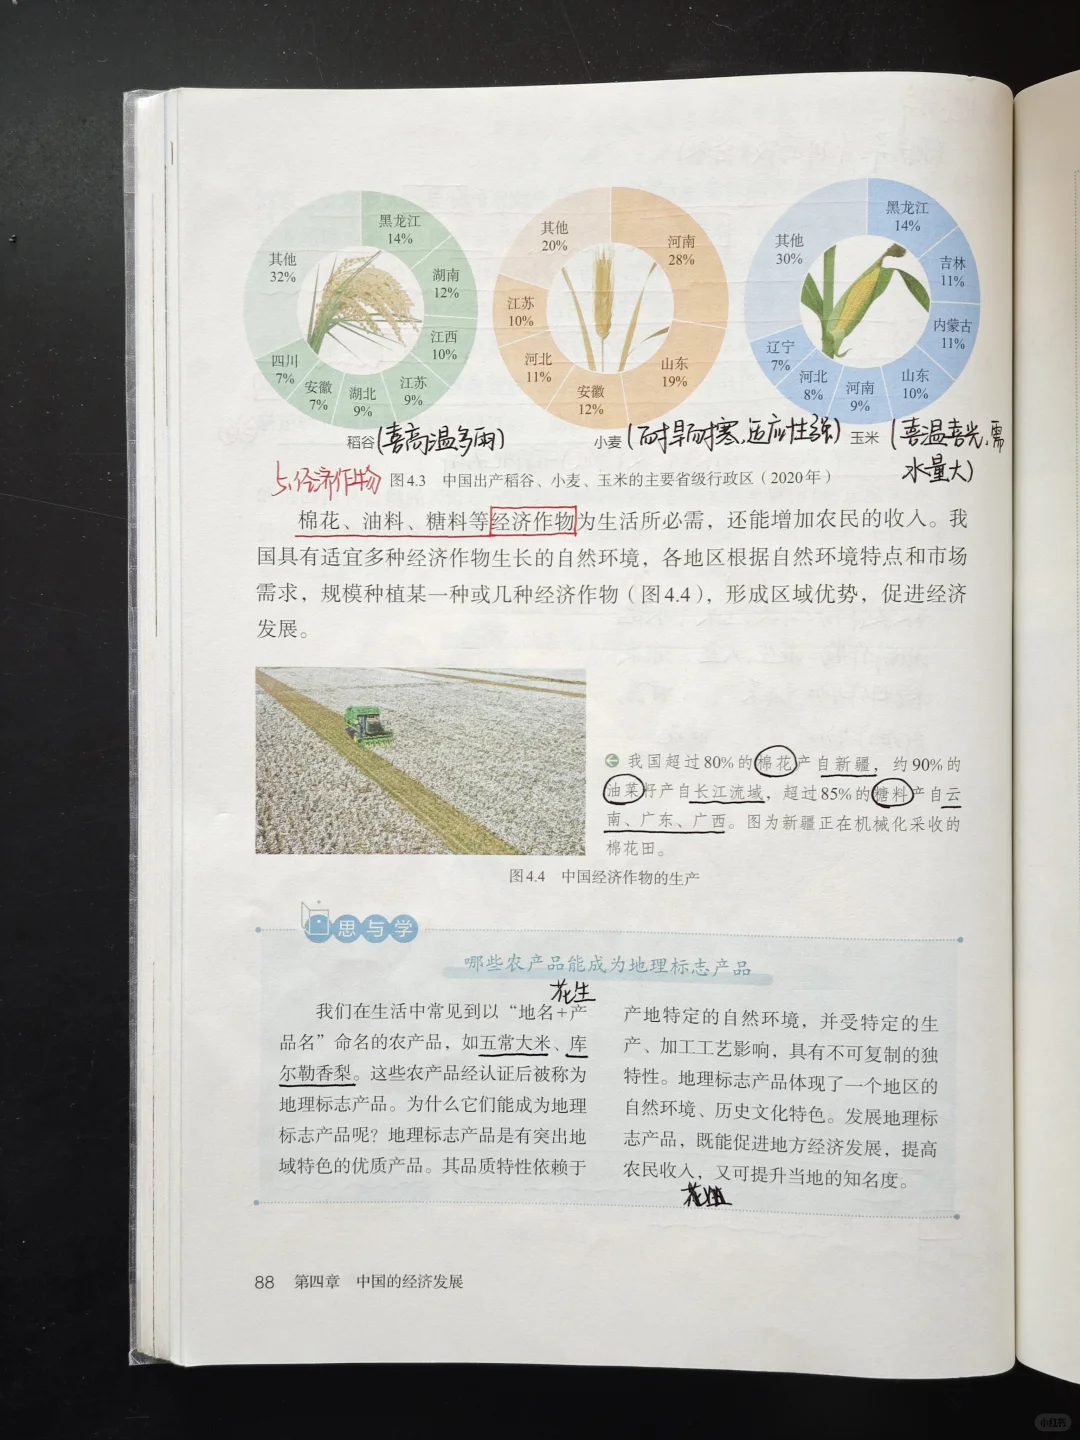 黑龙江
14%
湖南
12%
江西
10%
江苏
9%
湖北
9%
安徽
7%
四川
7%
其他
32%
稻谷(喜高温多雨)
河南
28%
山东
19%
安徽
12%
河北
11%
江苏
10%
其他
20%
小麦(耐旱耐寒、适应性强)
黑龙江
14%
吉林
11%
内蒙古
11%
山东
10%
河南
9%
河北
8%
辽宁
7%
其他
30%
玉米(喜温喜光、需
水量大)
5.经济作物
图4.3 中国出产稻谷、小麦、玉米的主要省级行政区(2020年)
棉花、油料、糖料等经济作物为生活所必需，还能增加农民的收入。我
国具有适宜多种经济作物生长的自然环境，各地区根据自然环境特点和市场
需求，规模种植某一种或几种经济作物(图4.4)，形成区域优势，促进经济
发展。
我国超过80%的棉花产自新疆，约90%的
油菜籽产自长江流域，超过85%的糖料产自云
南、广东、广西。图为新疆正在机械化采收的
棉花田。
图4.4 中国经济作物的生产
思与学
哪些农产品能成为地理标志产品
花生
我们在生活中常见到以“地名+产
品名”命名的农产品，如五常大米、库
尔勒香梨。这些农产品经认证后被称为
地理标志产品。为什么它们能成为地理
标志产品呢？地理标志产品是有突出地
域特色的优质产品。其品质特性依赖于
产地特定的自然环境，并受特定的生
产、加工工艺影响，具有不可复制的独
特性。地理标志产品体现了一个地区的
自然环境、历史文化特色。发展地理标
志产品，既能促进地方经济发展，提高
农民收入，又可提升当地的知名度。
88 第四章 中国的经济发展
小红书